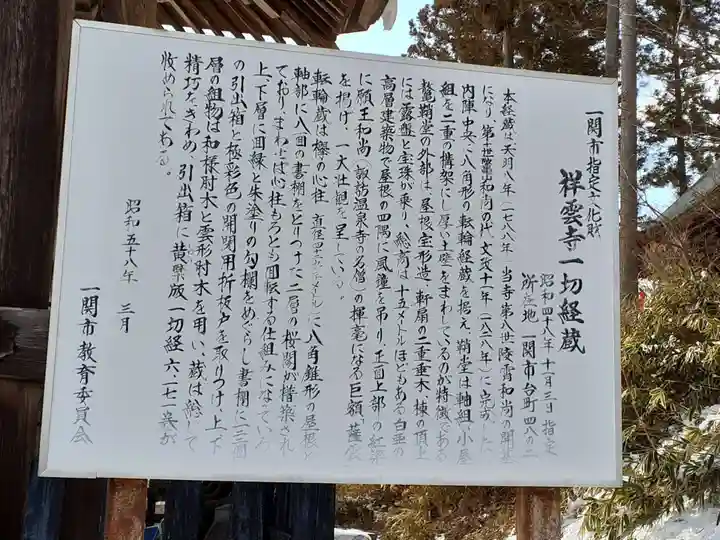 一関市指定文化財
祥雲寺一切経蔵
昭和四十八年十一月三日指定
所在地 一関市台町四八の二
本経蔵は天明八年（一七八八年）当寺第八世陵霄和尚の開基
になり、第十世 和尚の代、文政十一年（一八二八年）に完成した
内陣中央に八角形の転輪経蔵を据え、鞘堂は軸組、小屋
組を二重の構架にし厚い土壁をまわしているのが特徴である
鞘堂の外部は、屋根宝形造、軒扇の二重垂木、棟の頂上
には露盤と宝珠が乗り、総高は十五メートルほどもある白亜の
高層建築物で屋根の四隅に風鐘を吊り、正面上部の紅梁
に願王和尚（諏訪温泉寺の名僧）の揮毫になる巨額「蘆
を掲げ、一大壮観を呈している。
転輪蔵は欅の心柱 メートル に八角錐形の屋根と
軸部に八面の書棚をとりつけた二層の楼閣が構築され
ており、まわせば心柱もろとも回転する仕組みになっている
上、下層に回縁と朱塗りの勾欄をめぐらし書棚に二三個
の引出箱と極彩色の開閉用折板戸を取りつけ、上、下
層の組物は和様肘木と雲形肘木を用い、蔵は総じて
精巧をきわめ、引出箱に黄檗版一切経六、二七一巻が
收められてある。
昭和五十八年 三月
一関市教育委員会